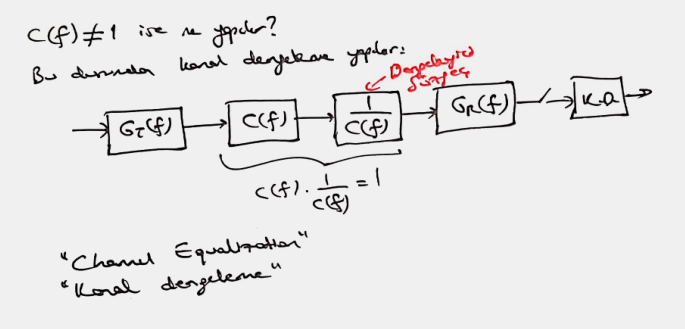 C(f) ≠ 1 ise ne yapılır?
Bu durumda kanal dengeleme yapılır:
Dengeleyici
Süzgeç
G_T(f)
C(f)
1/C(f)
G_R(f)
K.D.
C(f) · 1/C(f) = 1
"Channel Equalization"
"Kanal dengeleme"